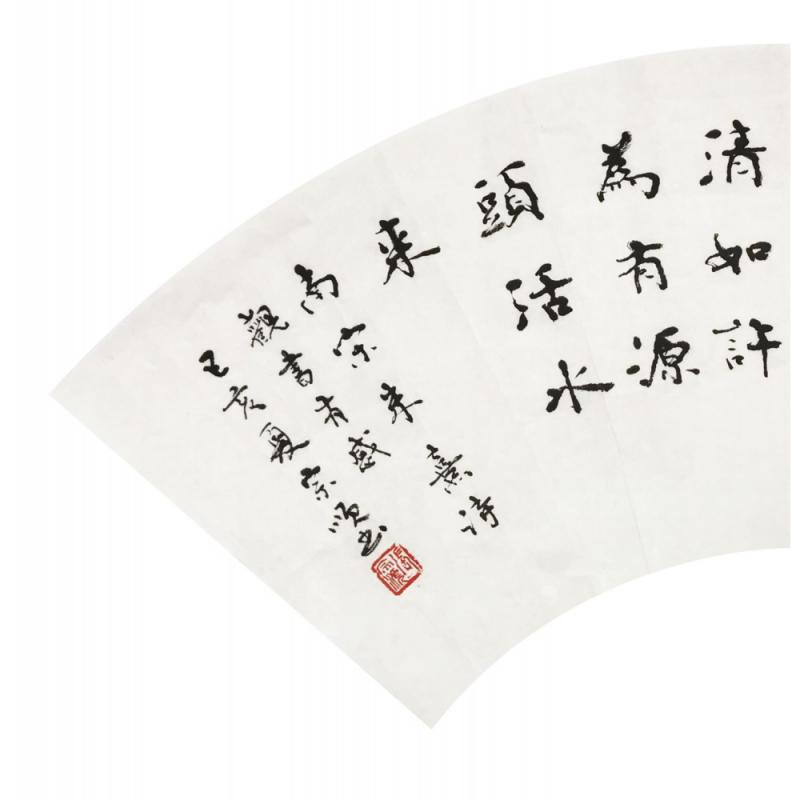 清如許
為有源
頭活水
来
南宋朱熹詩
觀書有感
亥夏宗順书